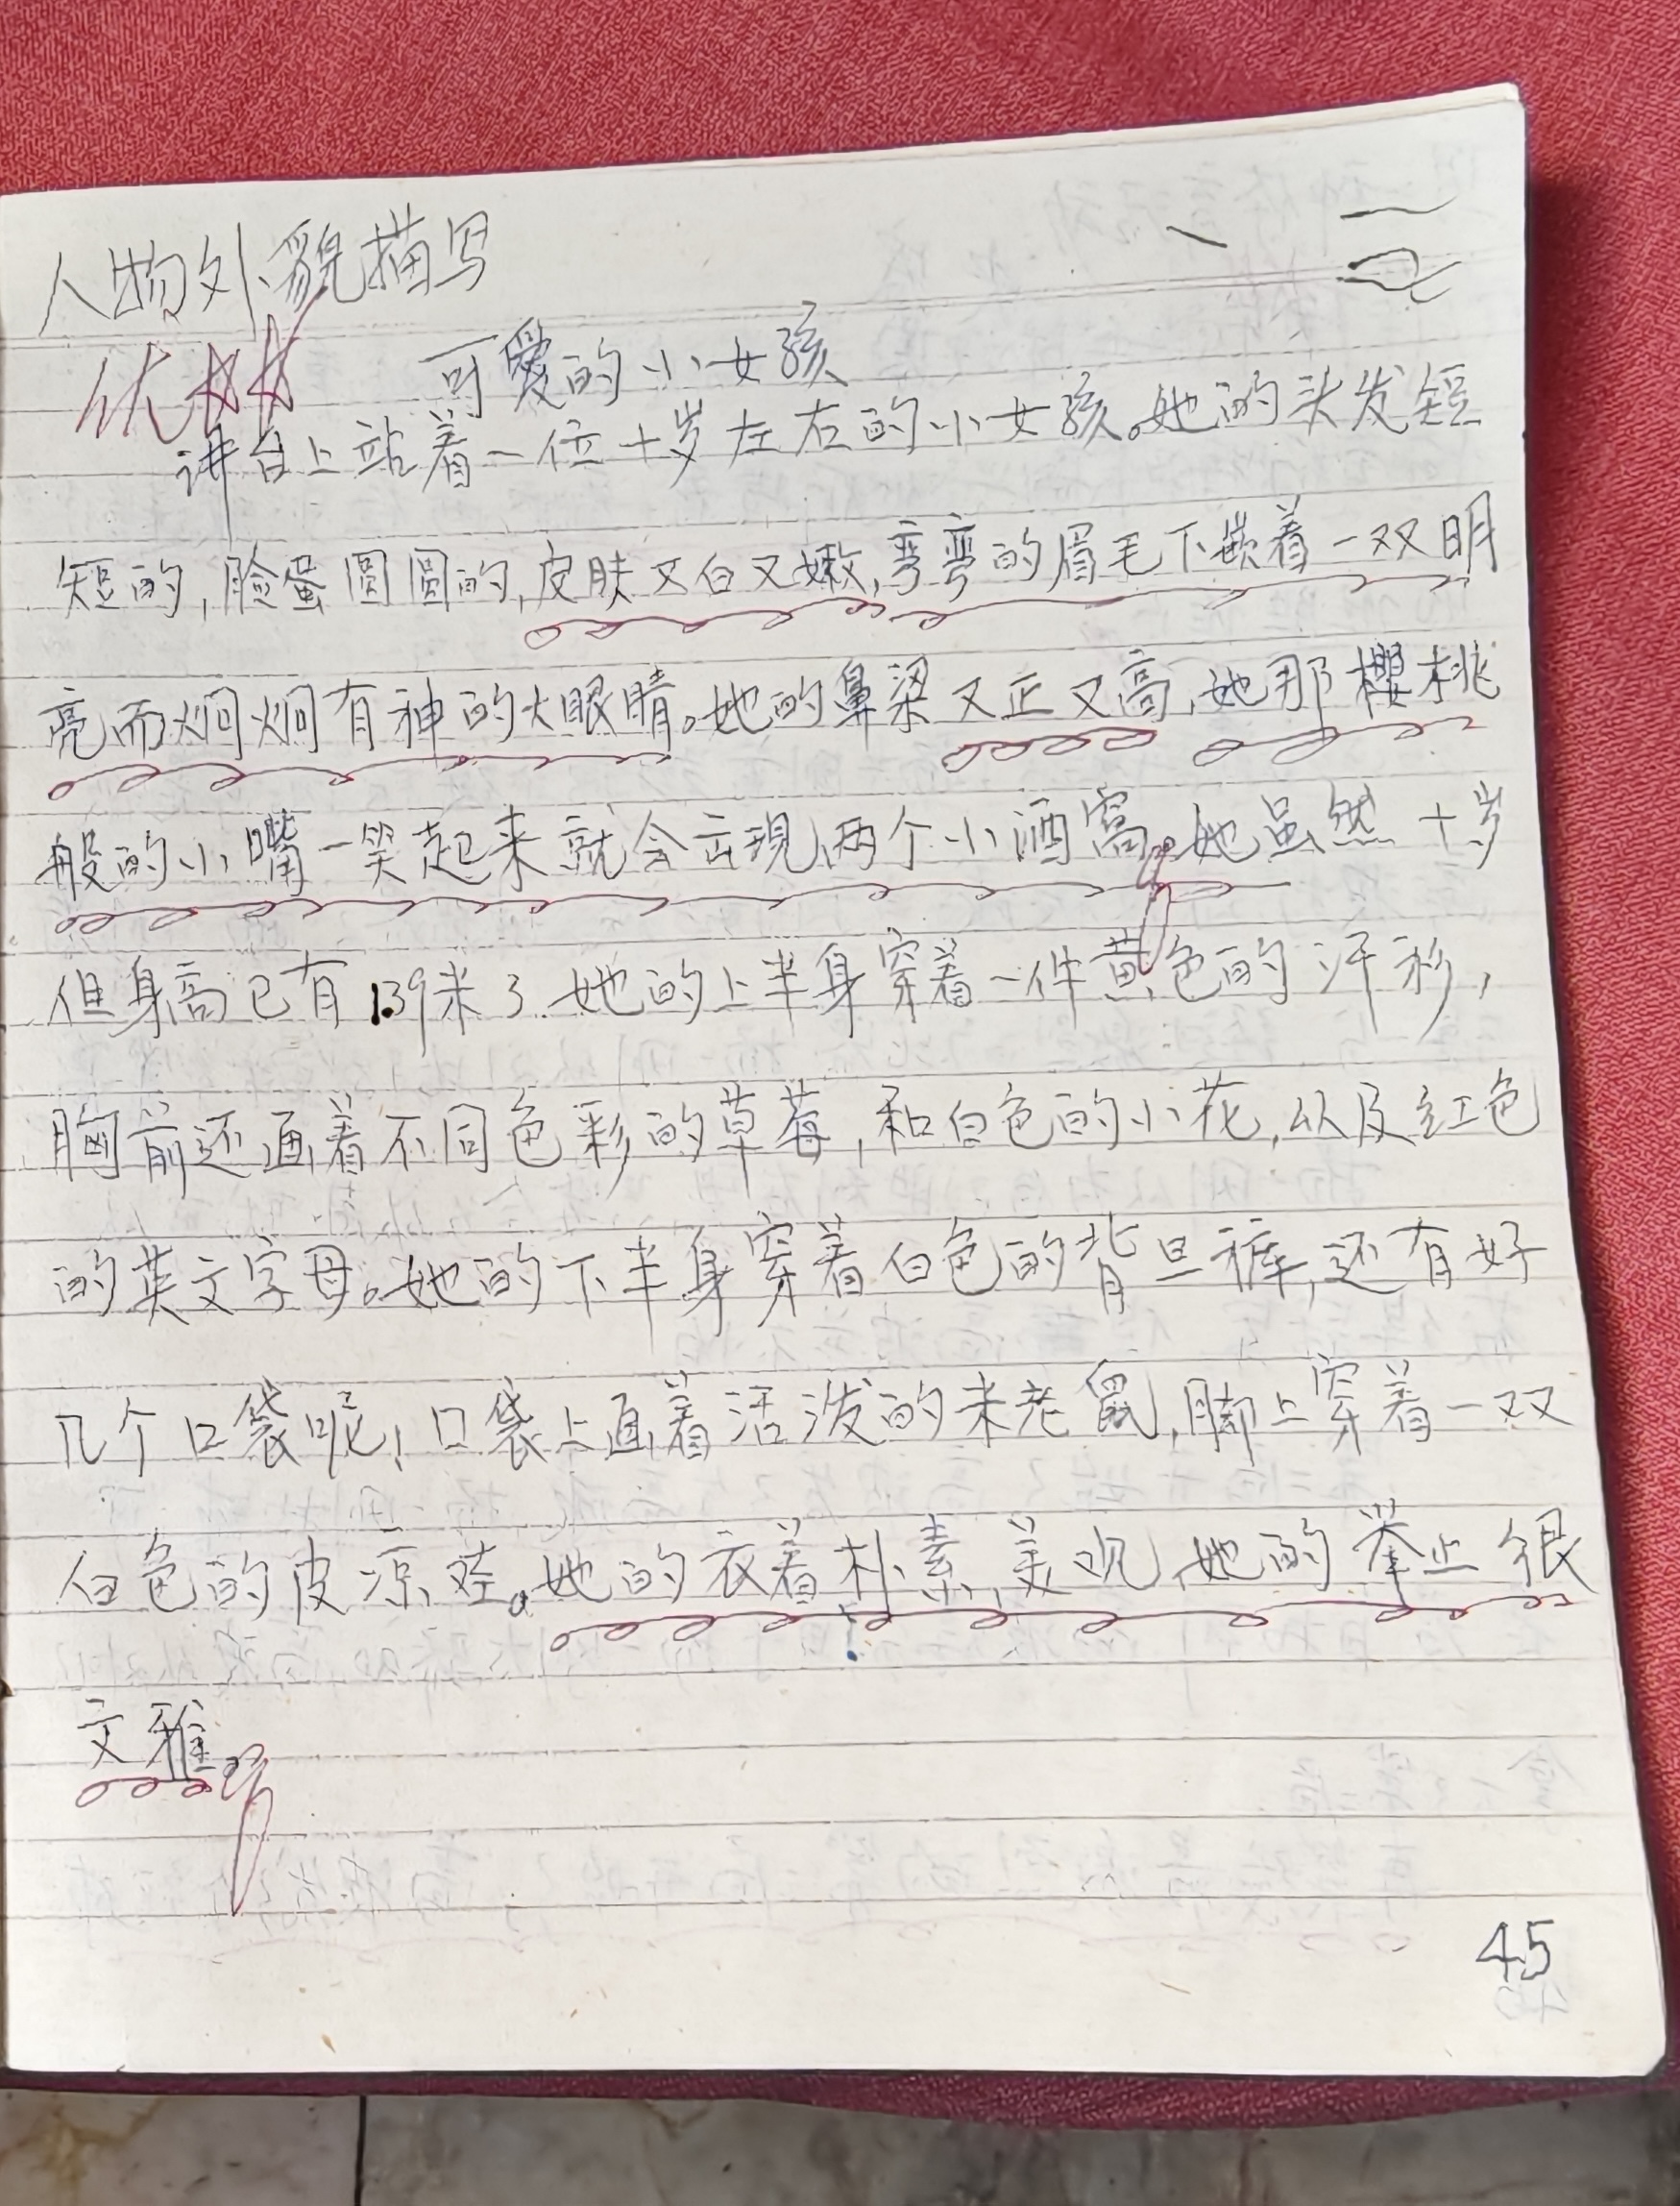 人物外貌描写
优
可爱的小女孩
讲台上站着一位十岁左右的小女孩。她的头发短
短的,脸蛋圆圆的,皮肤又白又嫩,弯弯的眉毛下嵌着一双明
亮而炯炯有神的大眼睛。她的鼻梁又正又高,她那樱桃
般的小嘴一笑起来就会出现两个小酒窝。她虽然十岁
但身高已有1.39米了.她的上半身穿着一件黄色的汗衫,
胸前还画着不同色彩的草莓,和白色的小花,以及红色
的英文字母。她的下半身穿着白色的背旦裤,还有好
几个口袋呢!口袋上画着活泼的米老鼠,脚上穿着一双
白色的皮凉鞋。她的衣着朴素,美观,她的举止很
文雅。
45